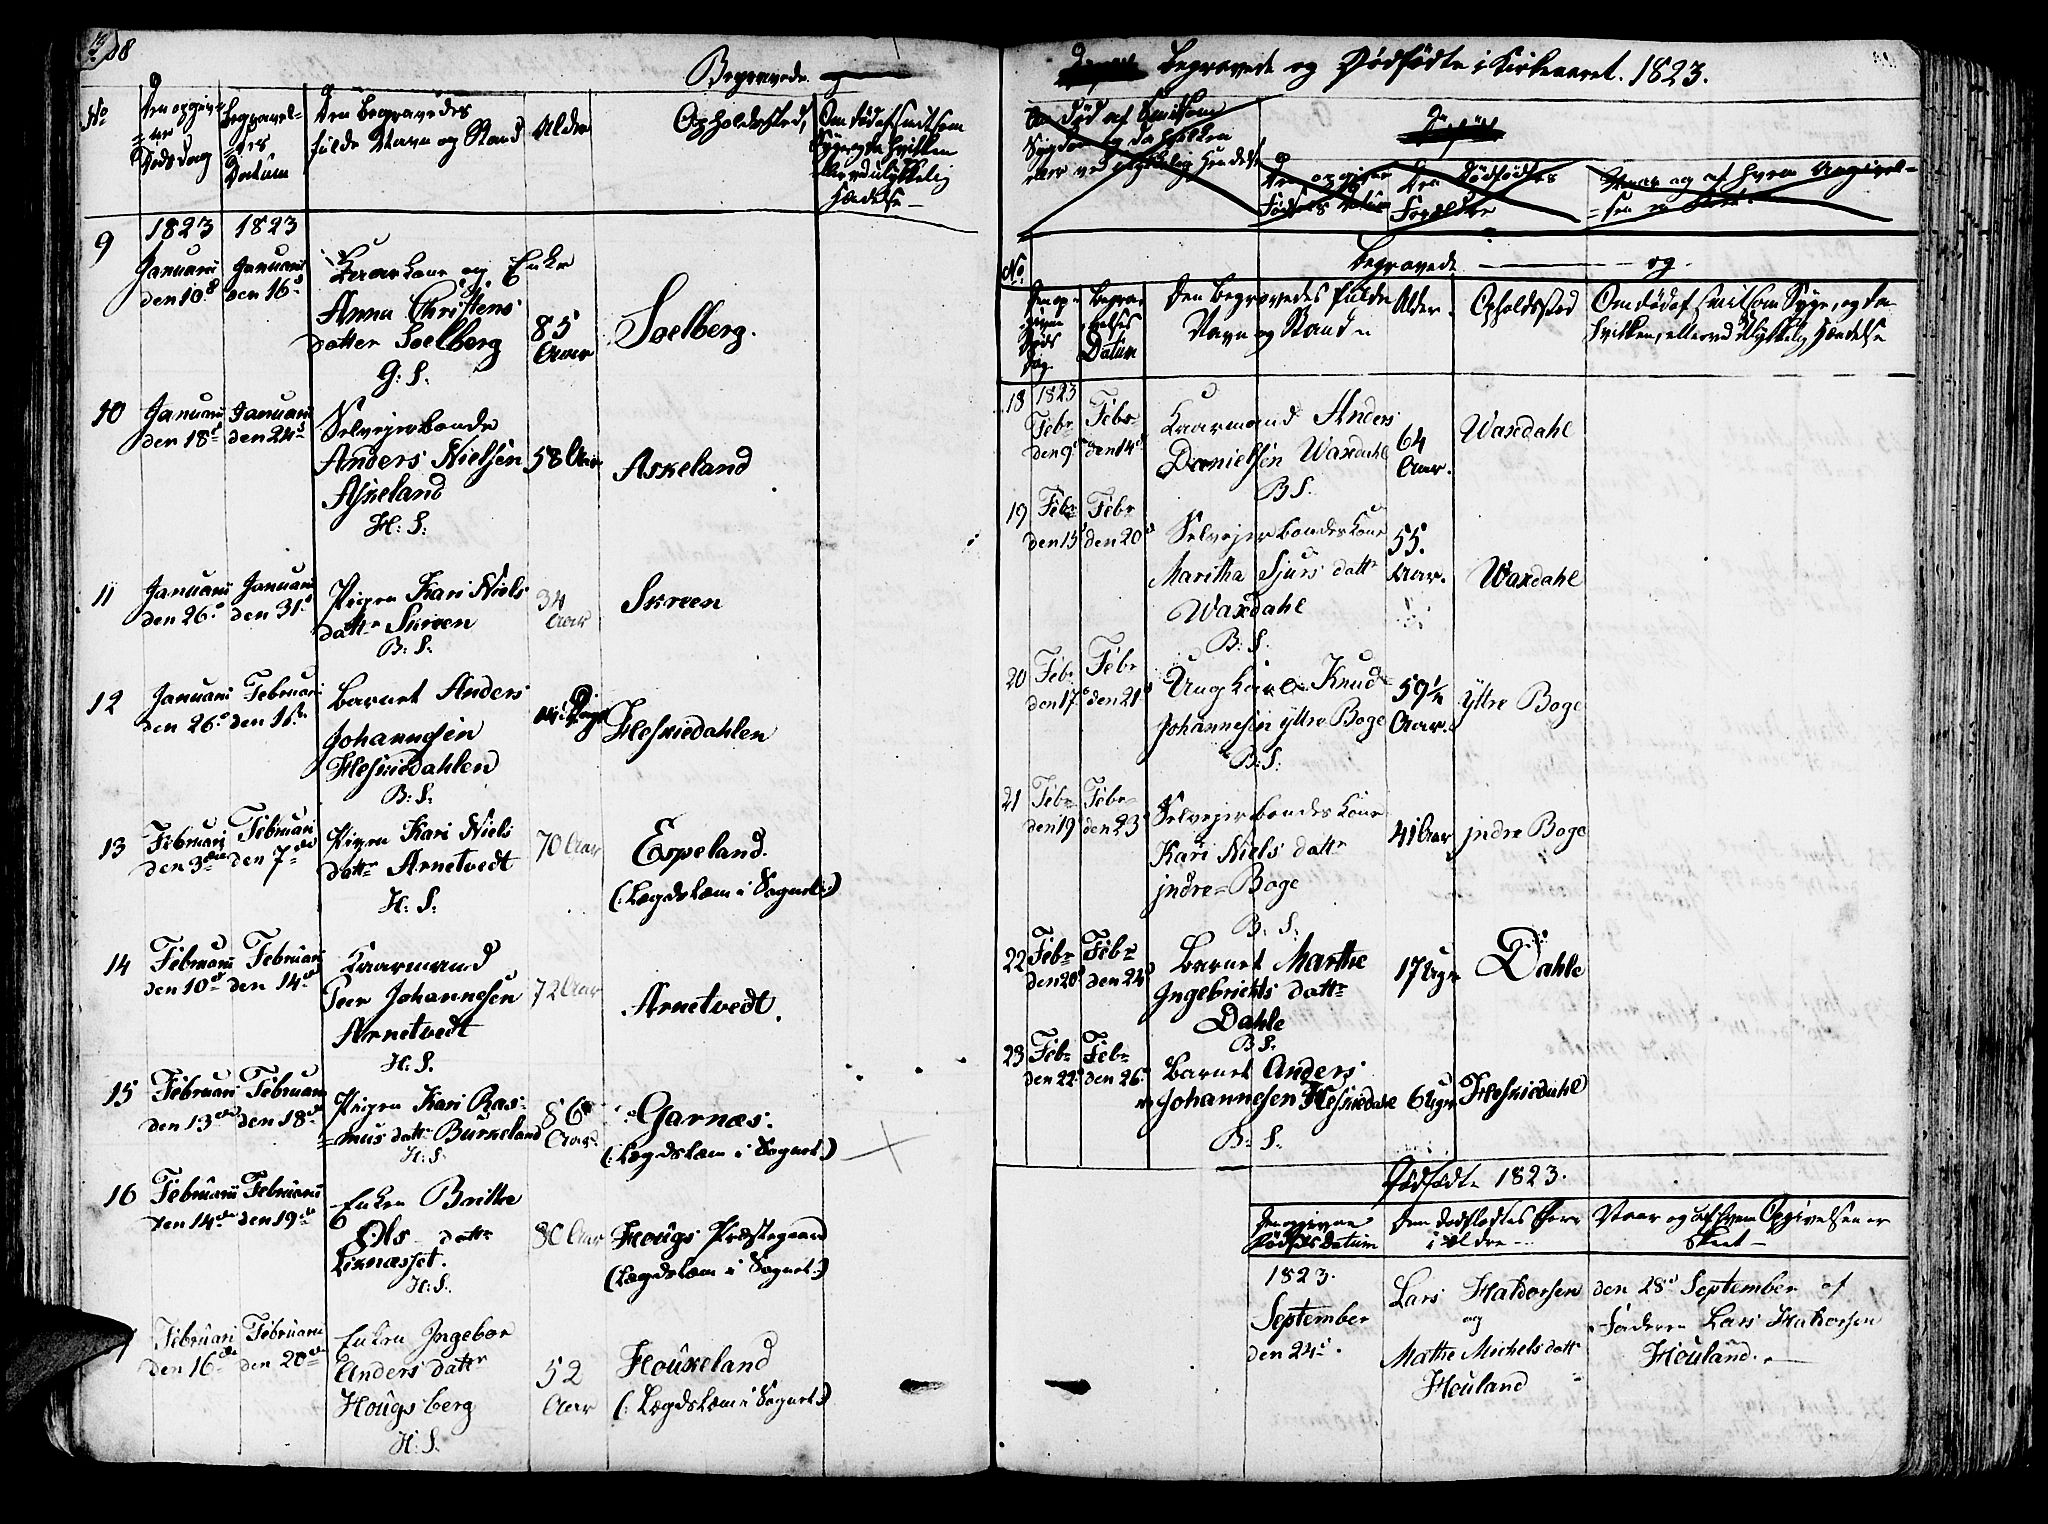 Begravede
No
Den opgiv-
ne
Dödsdag
Begravel-
ses
Datum
Den Begravedes
fulde Navn og Stand
Alder
Opholdssted,
Om död af smitsom
Syge og da hvilken
eller ved ulykkelig
Hendelse
1823 1823
9
Januari
den 10d
Januari
den 16d
Kaarkone og Enke
Anna Christens
datter Soelberg
G: S.
85
Aar
Soelberg.
10
Januari
den 18d
Januari
den 24d
Selvejerbonde
Anders Nielsen
Askeland
H: S:
58 Aar
Askeland
11
Januari
den 26d
Januari
den 31d
Pigen Kari Niels
dattr Skreen
B: S.
34
Aar
Skreen
12
Januari
den 26d
Februari
den 1ste
Barnet Anders
Johannesen
Heskiedahlen
B: S:
Heskiedahlen
13
Februari
den 3die
Februari
den 7de
Pigen Kari Niels
dattr Arnetvedt
H: S.
70 Aar
Espeland.
(: Lægdslem i Sognet :)
14
Februari
den 10d
Februari
den 14d
Kaarmand
Peer Johannesen
Arnetvedt
H: S.
72 Aar
Arnetvedt.
15
Februari
den 13de
Februari
den 18de
Pigen Kari Ras-
mus dattr Burkeland
H: S.
86
Aar
Garnæs.
(: Lægdslem i Sognet :)
16
Februari
den 14de
Februari
den 19de
Enken Brithe
Ols dattr
H: S.
80 Aar
Hougs Præstegaard
(Lægdslem i Sognet :)
Februari
den 16de
Februari
den 20de
Enken Ingebor
Anders dattr
Hougsberg
H: S.
52
Aar
Houkeland
(: Lægdslem i Sognet :)
Begravede og Dödfödte i Kirkeaaret. 1823.
Begravede og
No
Begra-
velses
Datum
Den Begravedes fulde
Navn og Stand
Alder.
Opholdssted
Om död af smitsom Syge, og da
hvilken, eller ved Ulykkelig Hændelse
18
1823
Febr
den 9de
Febr
den 14d
Kaarmand Anders
Danielsen Waxdahl
B S.
64
Aar.
Waxdahl
19
Febr
den 15d
Febr
den 20d
Selvejerbondes Kone
Maritha Sjurs dattr
Waxdahl
B: S.
55.
Aar.
Waxdahl
20
Febr
den 17d
Febr
den 21d
Ung Karl Knud
Johannesen Yttre Boge
B: S:
59 1/2
Aar.
Yttre Boge
21
Febr
den 19
Febr
den 23d
Selvejerbondes Kone
Kari Niels dattr
jndre-Boge
B. S.
41 Aar
jndre Boge
22
Febr
den 20d
Febr
den 24d
Barnet Marthe
Ingebrickts dattr
Dahle
B S:
17 Uger
Dahle
23
Febr
den 22d
Febr
den 26d
Barnet Anders
Johannesen Heskiedahl
B: S.
6 Uger
Heskiedahl
Dödfödte 1823.
Den givne
Födsels Datum
Den Dödfödtes For-
ældre
Naar og af hvem Opgivelsen er
Skeet
1823.
September
den 24d.
Lars Haldorsen
og
Mathe Michels dattr
Houland
den 28d September af
Faderen Lars Haldorsen
Houland.